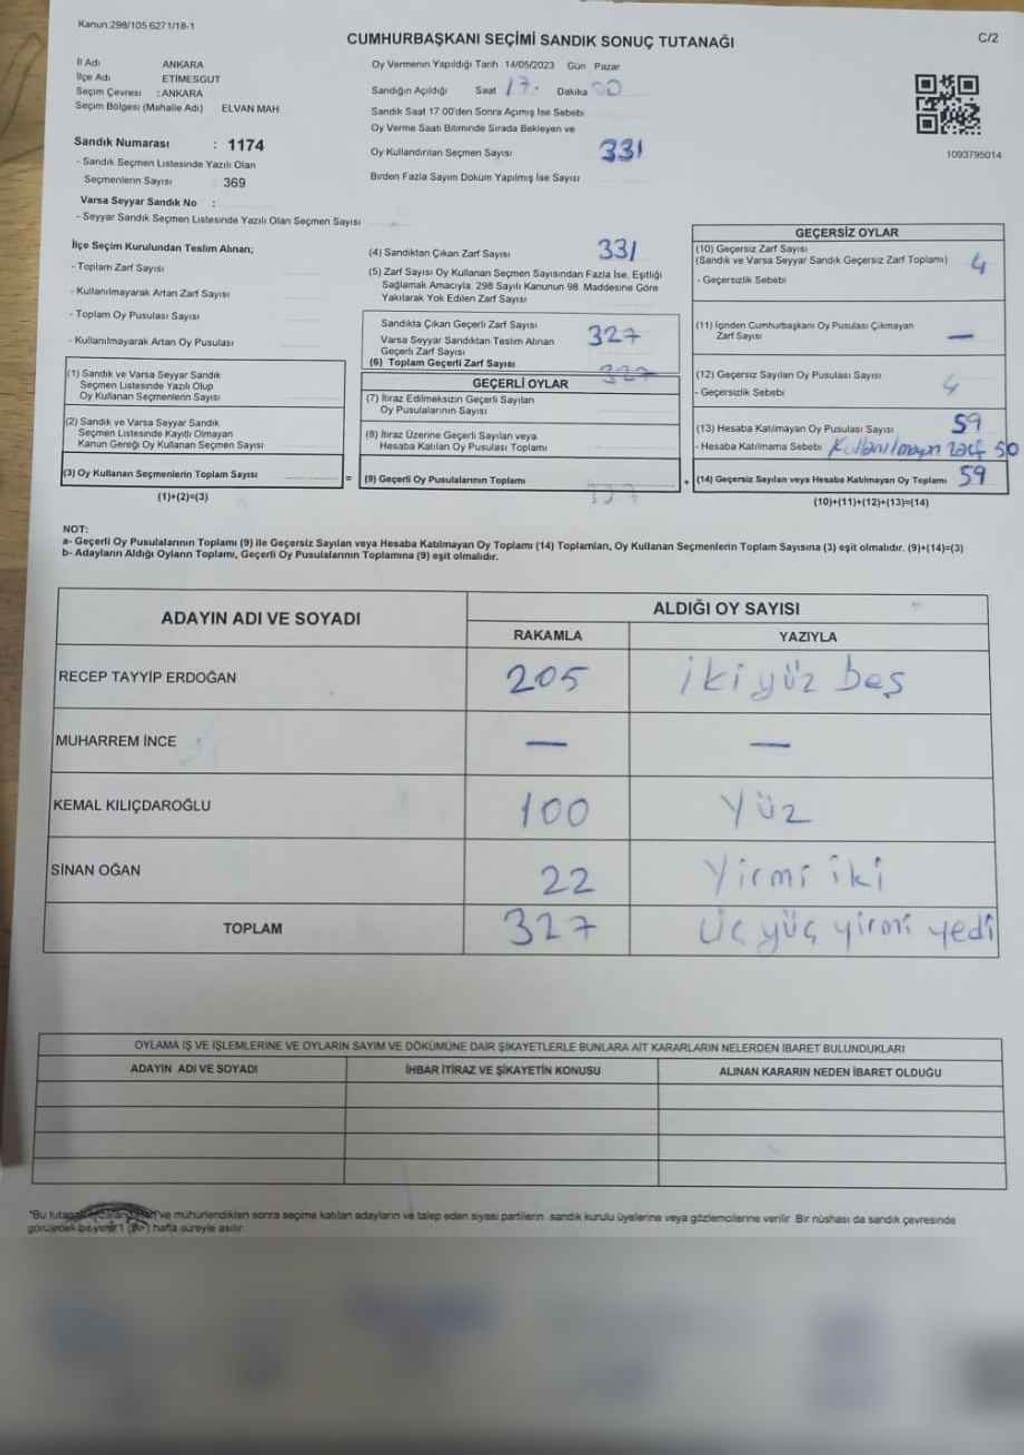 Kanun:298/105 6271/18-1
CUMHURBAŞKANI SEÇİMİ SANDIK SONUÇ TUTANAĞI
C/2
İl Adı ANKARA
İlçe Adı ETİMESGUT
Seçim Çevresi : ANKARA
Seçim Bölgesi (Mahalle Adı) ELVAN MAH.
Sandık Numarası : 1174
- Sandık Seçmen Listesinde Yazılı Olan
Seçmenlerin Sayısı 369
Varsa Seyyar Sandık No :
- Seyyar Sandık Seçmen Listesinde Yazılı Olan Seçmen Sayısı
Oy Vermenin Yapıldığı Tarih 14/05/2023 Gün Pazar
Sandığın Açıldığı Saat 17. Dakika 00
Sandık Saat 17.00'den Sonra Açımış İse Sebebi
Oy Verme Saati Bitiminde Sırada Bekleyen ve
Oy Kullandırılan Seçmen Sayısı 331
Birden Fazla Sayım Döküm Yapılmış İse Sayısı
1093795014
İlçe Seçim Kurulundan Teslim Alınan;
- Toplam Zarf Sayısı
- Kullanılmayarak Artan Zarf Sayısı
- Toplam Oy Pusulası Sayısı
- Kullanılmayarak Artan Oy Pusulası
(1) Sandık ve Varsa Seyyar Sandık
Seçmen Listesinde Yazılı Olup
Oy Kullanan Seçmenlerin Sayısı
(2) Sandık ve Varsa Seyyar Sandık
Seçmen Listesinde Kayıtlı Olmayan
Kanun Gereği Oy Kullanan Seçmen Sayısı
(3) Oy Kullanan Seçmenlerin Toplam Sayısı
(1)+(2)=(3)
(4) Sandıktan Çıkan Zarf Sayısı 331
(5) Zarf Sayısı Oy Kullanan Seçmen Sayısından Fazla İse, Eşitliği
Sağlamak Amacıyla; 298 Sayılı Kanunun 98. Maddesine Göre
Yakılarak Yok Edilen Zarf Sayısı
Sandıkta Çıkan Geçerli Zarf Sayısı 327
Varsa Seyyar Sandıktan Teslim Alınan
Geçerli Zarf Sayısı
(6) Toplam Geçerli Zarf Sayısı 327
GEÇERLİ OYLAR
(7) İtiraz Edilmeksizin Geçerli Sayılan
Oy Pusulalarının Sayısı
(8) İtiraz Üzerine Geçerli Sayılan veya
Hesaba Katılan Oy Pusulası Toplamı
= (9) Geçerli Oy Pusulalarının Toplamı 327
GEÇERSİZ OYLAR
(10) Geçersiz Zarf Sayısı
(Sandık ve Varsa Seyyar Sandık Geçersiz Zarf Toplamı) 4
- Geçersizlik Sebebi
(11) İçinden Cumhurbaşkanı Oy Pusulası Çıkmayan
Zarf Sayısı —
(12) Geçersiz Sayılan Oy Pusulası Sayısı 4
- Geçersizlik Sebebi
(13) Hesaba Katılmayan Oy Pusulası Sayısı 59
- Hesaba Katılmama Sebebi Kullanılmayan zarf 50
+ (14) Geçersiz Sayılan veya Hesaba Katılmayan Oy Toplamı 59
(10)+(11)+(12)+(13)=(14)
NOT:
a- Geçerli Oy Pusulalarının Toplamı (9) ile Geçersiz Sayılan veya Hesaba Katılmayan Oy Toplamı (14) Toplamları, Oy Kullanan Seçmenlerin Toplam Sayısına (3) eşit olmalıdır. (9)+(14)=(3)
b- Adayların Aldığı Oyların Toplamı, Geçerli Oy Pusulalarının Toplamına (9) eşit olmalıdır.
ADAYIN ADI VE SOYADI
ALDIĞI OY SAYISI
RAKAMLA YAZIYLA
RECEP TAYYİP ERDOĞAN 205 iki yüz beş
MUHARREM İNCE — —
KEMAL KILIÇDAROĞLU 100 Yüz
SİNAN OĞAN 22 Yirmi iki
TOPLAM 327 Üç yüç yirmi yedi
OYLAMA İŞ VE İŞLEMLERİNE VE OYLARIN SAYIM VE DÖKÜMÜNE DAİR ŞİKAYETLERLE BUNLARA AİT KARARLARIN NELERDEN İBARET BULUNDUKLARI
ADAYIN ADI VE SOYADI İHBAR İTİRAZ VE ŞİKAYETİN KONUSU ALINAN KARARIN NEDEN İBARET OLDUĞU
"Bu ve mühürlendikten sonra seçime katılan adayların ve talep eden siyasi partilerin sandık kurulu üyelerine veya gözlemcilerine verilir. Bir nüshası da sandık çevresinde
hafta süreyle asılır.